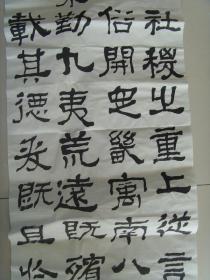 社稷之重上從
俗開邑畿寓南八
勤九夷荒遠既
載其德爰既且